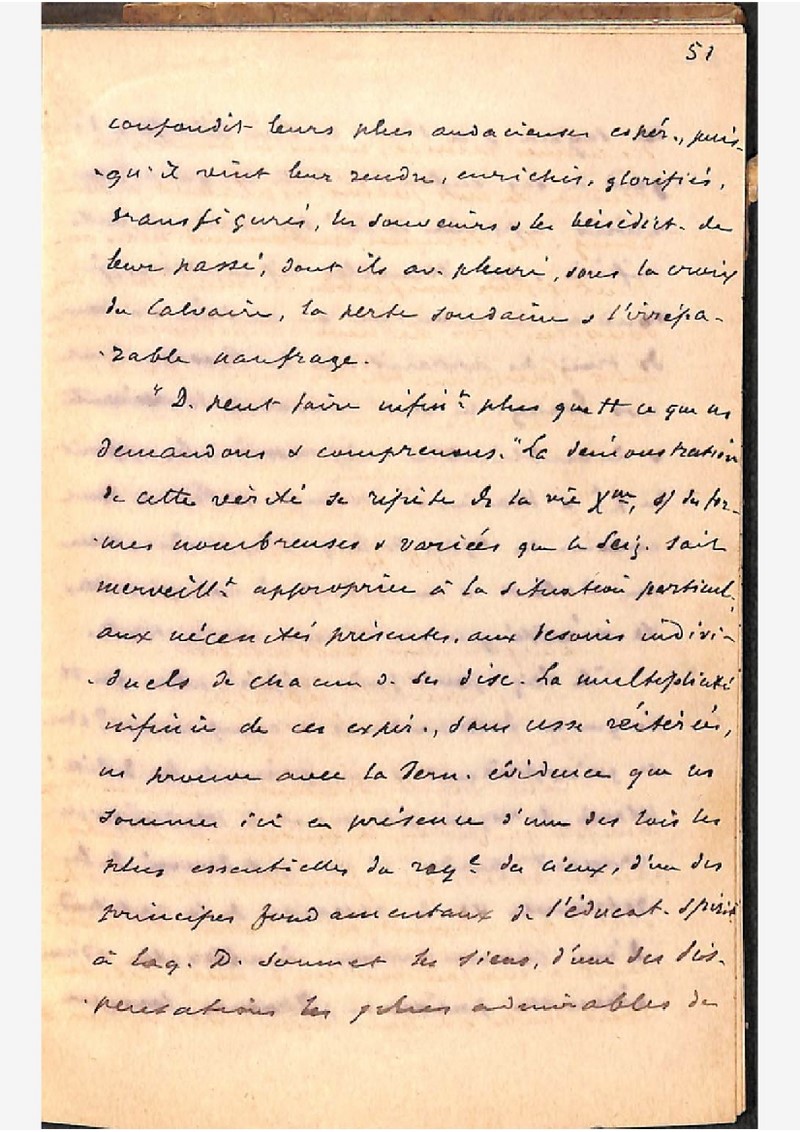 51
confondit leurs plus audacieuses espér., puis-
-qu'il vient leur rendre, enrichis, glorifiés,
transfigurés, les souvenirs & les bénédict. de
leur passé, dont ils av. pleuré, sous la croix
du Calvaire, la perte soudaine & l'irrépa-
-rable naufrage.
"D. peut faire infint plus que tt ce que ns
demandons & comprenons." La démonstration
de cette vérité se répète ds la vie Xne, s/ des for-
-mes nombreuses & variées que le Seig. sait
merveillt approprier à la situation particul.,
aux nécessités présentes, aux besoins indivi-
-duels de chacun d. ses disc. La multiplicité
infinie de ces expér., sans cesse réitérées,
ns prouve avec la dern. évidence que ns
sommes ici en présence d'une des lois les
plus essentielles du roye des cieux, d'un des
principes fondamentaux de l'éducat. spirit.
à laq. D. soumet les siens, d'une des dis-
-pensations les plus admirables de